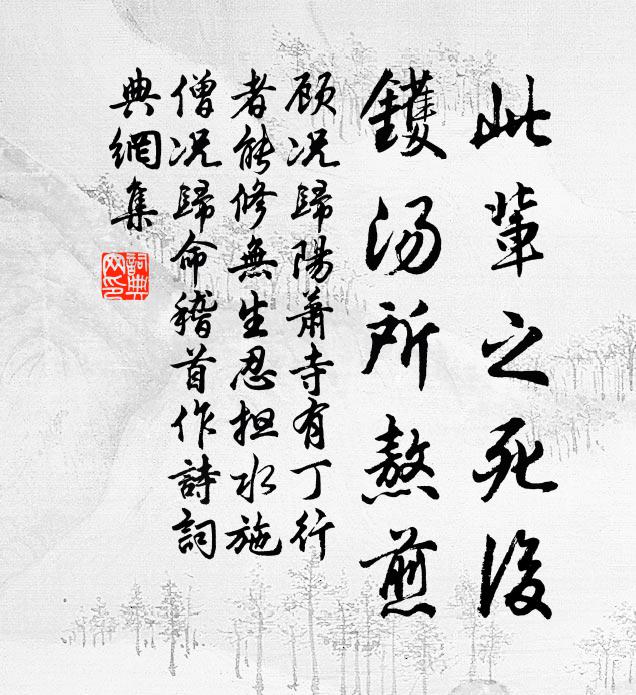 此輩之死後
鑊湯所熬煎
顧况歸陽蕭寺有丁行
者能修無生忍担水施
僧况歸命稽首作詩詞
典網集
詞典
网印